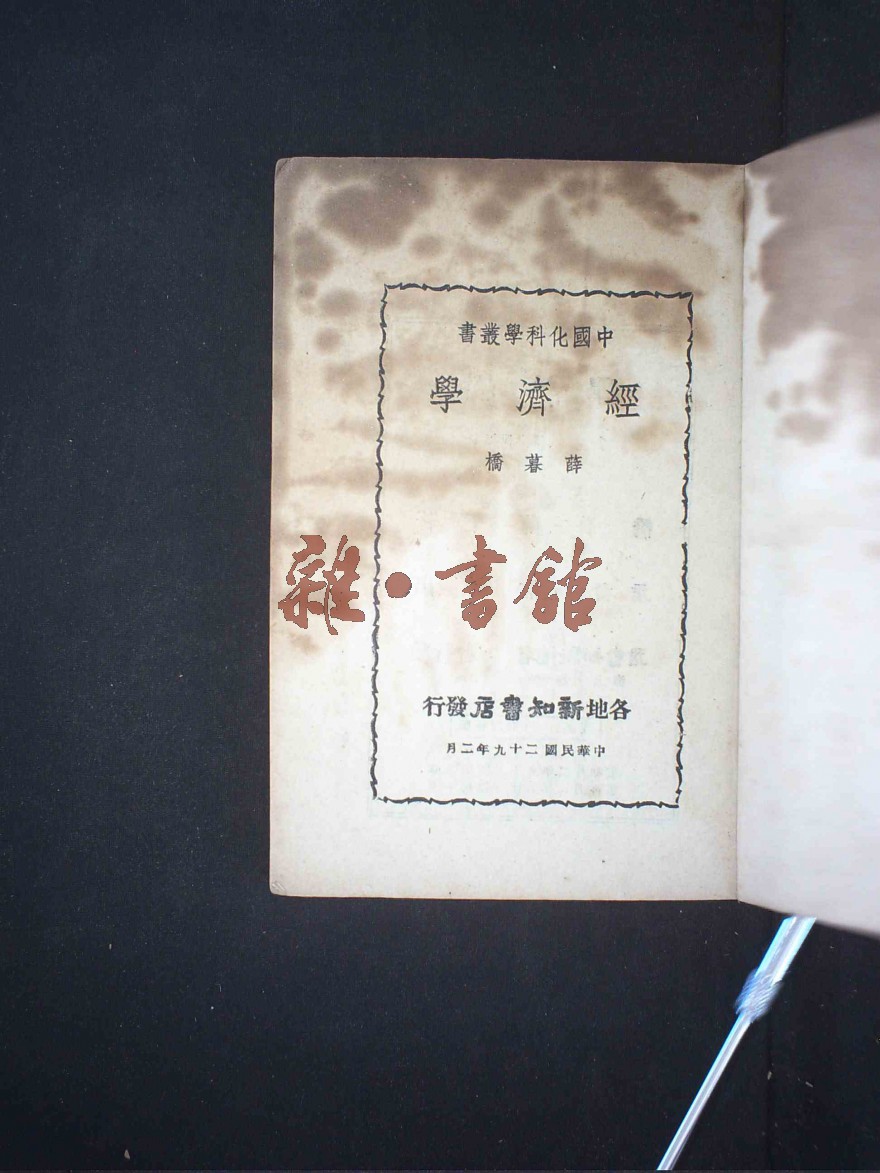 中國化科學叢書
經濟學
薛暮橋
雜·書館
各地新知書店發行
中華民國二十九年二月